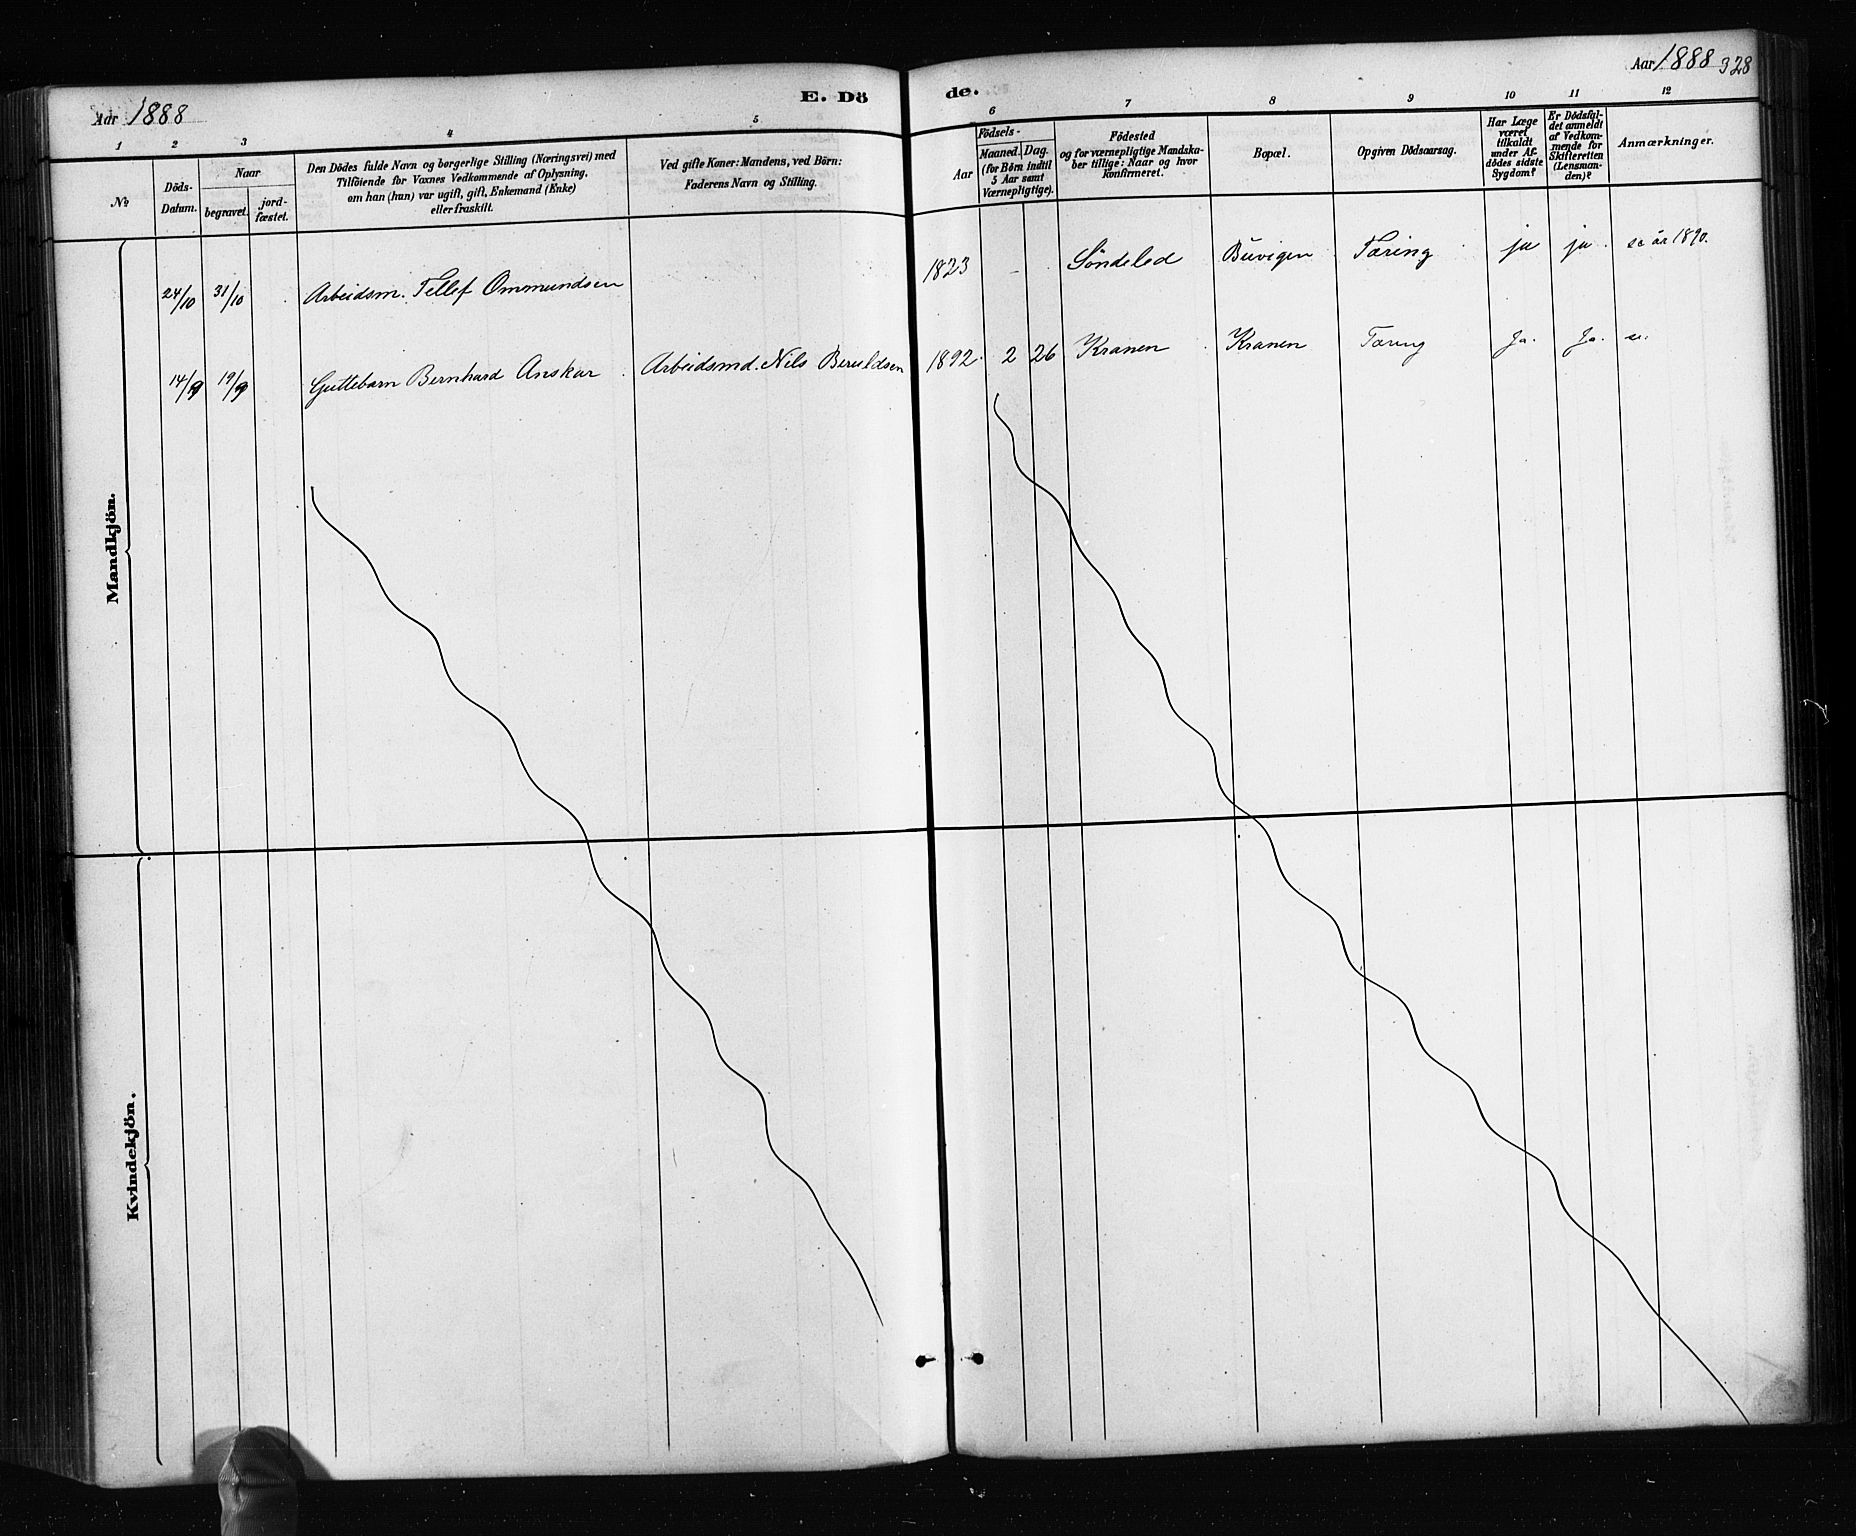 Aar 1888
E. Dö
de.
Aar 1888
328
1 2 3 4 5
6 7 8 9 10 11 12
No
Döds-
Datum.
Naar
begravet.
jord-
fæstet.
Den Dödes fulde Navn og borgerlige Stilling (Næringsvei) med
Tilföiende for Voxnes Vedkommende af Oplysning,
om han (hun) var ugift, gift, Enkemand (Enke)
eller fraskilt.
Ved gifte Koner: Mandens, ved Börn:
Faderens Navn og Stilling.
Födsels-
Aar
Maaned. Dag.
(for Börn indtil
5 Aar samt
Værnepligtige).
Födested
og for værnepligtige Mandska-
ber tillige: Naar og hvor
konfirmeret.
Bopæl.
Opgiven Dödsaarsag.
Har Læge
været
tilkaldt
under Af-
dödes sidste
Sygdom?
Er Dödsfal-
det anmeldt
af Vedkom-
mende for
Skifteretten
(Lensman-
den)?
Anmærkninger.
Mandkjön.
24/10 31/10 Arbeidsm. Tellef Ommundsen 1823 - Söndeled Buvigen Tæring ja ja. se år 1890.
14/9 19/9 Guttebarn Bernhard Anskar. Arbeidsmd. Nils Beruldsen 1892. 2 26 Kranen Kranen Tæring Ja. Ja. se.
Kvindekjön.